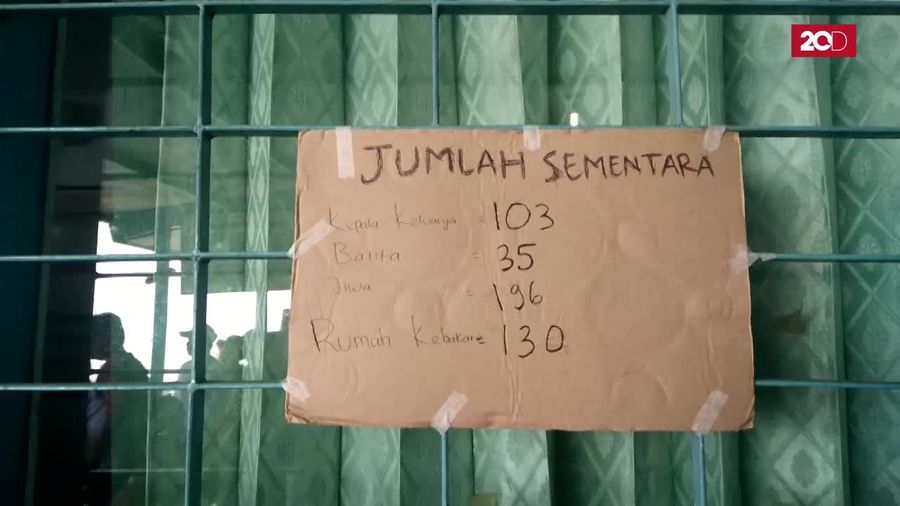 20D
JUMLAH SEMENTARA
Kepala Keluarga = 103
Balita = 35
Jiwa = 196
Rumah Kebakar = 130